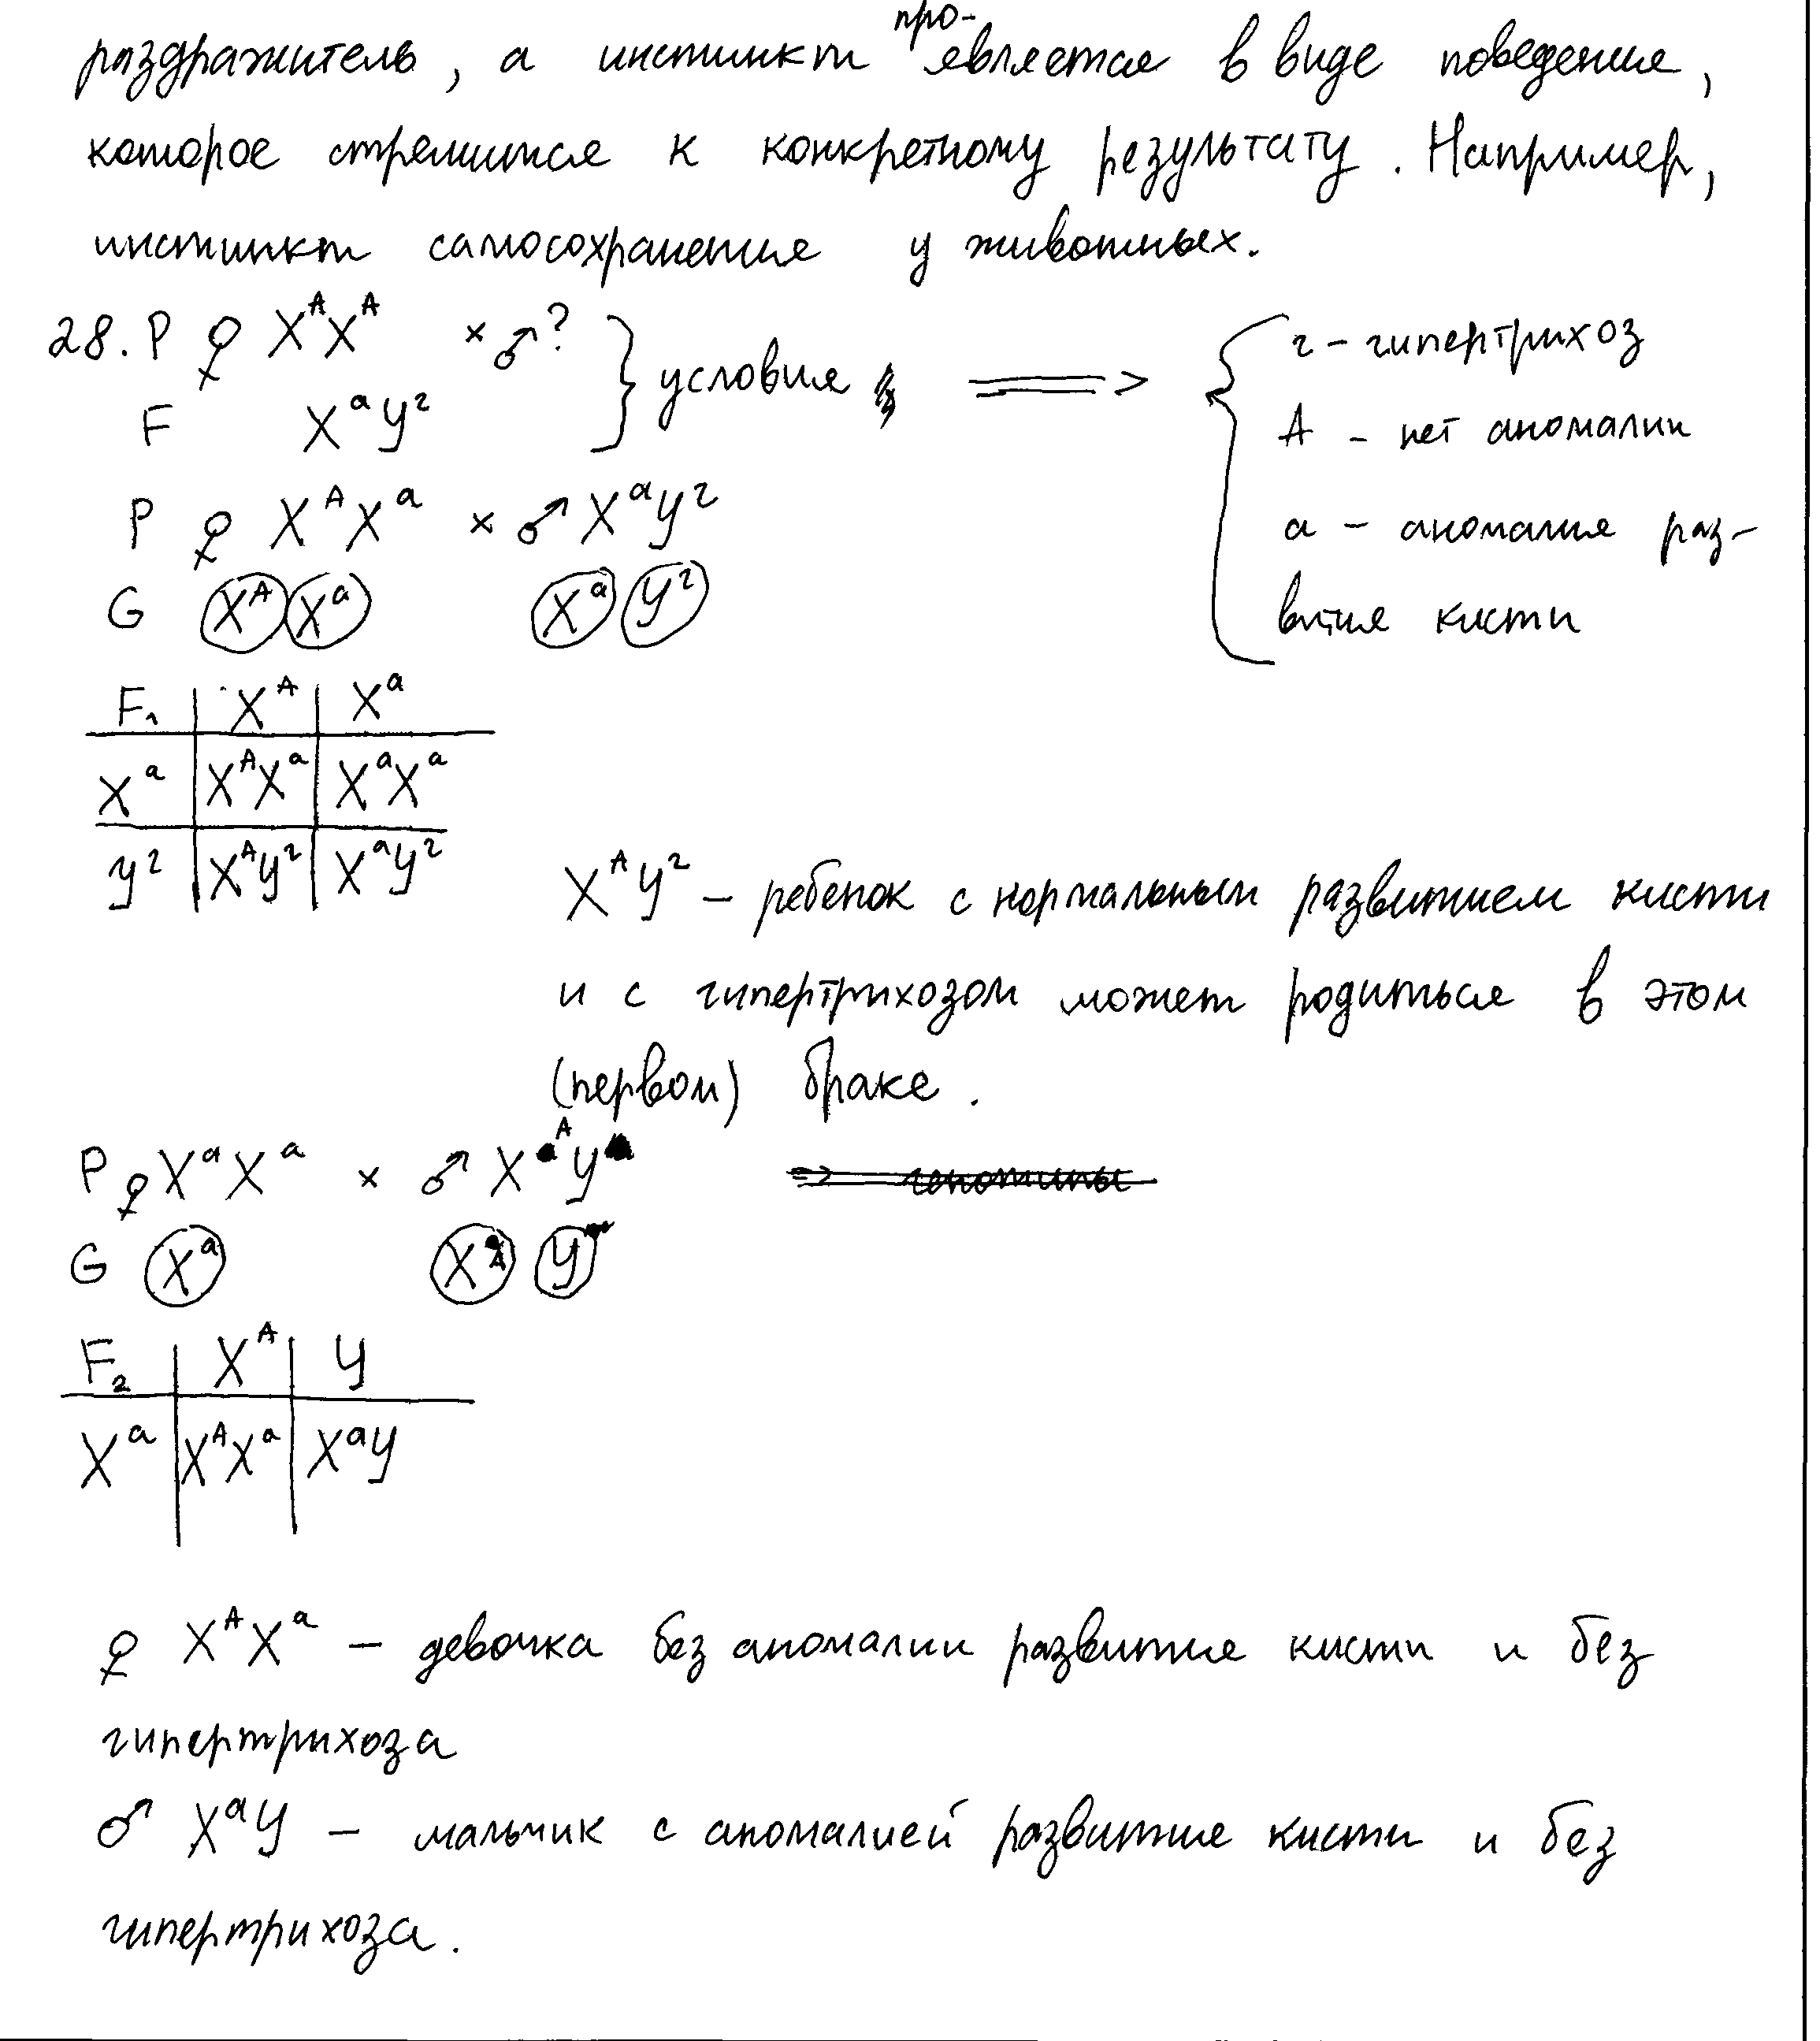 про-
раздражитель, а инстинкт является в виде поведения,
которое стремится к конкретному результату. Например,
инстинкт самосохранения у животных.
28. P ♀ XᴬXᴬ × ♂ ? } условия ==> { г - гипертрихоз
F XᵃYᵍ A - нет аномалии
P ♀ XᴬXᵃ × ♂ XᵃYᵍ а - аномалия раз-
G Xᴬ Xᵃ Xᵃ Yᵍ вития кисти
F₁ | Xᴬ | Xᵃ
Xᵃ | XᴬXᵃ | XᵃXᵃ
Yᵍ | XᴬYᵍ | XᵃYᵍ
XᴬYᵍ - ребенок с нормальным развитием кисти
и с гипертрихозом может родиться в этом
(первом) браке.
P ♀ XᵃXᵃ × ♂ XᴬY => генотипы
G Xᵃ Xᴬ Y
F₂ | Xᴬ | Y
Xᵃ | XᴬXᵃ | XᵃY
♀ XᴬXᵃ - девочка без аномалии развития кисти и без
гипертрихоза
♂ XᵃY - мальчик с аномалией развития кисти и без
гипертрихоза.